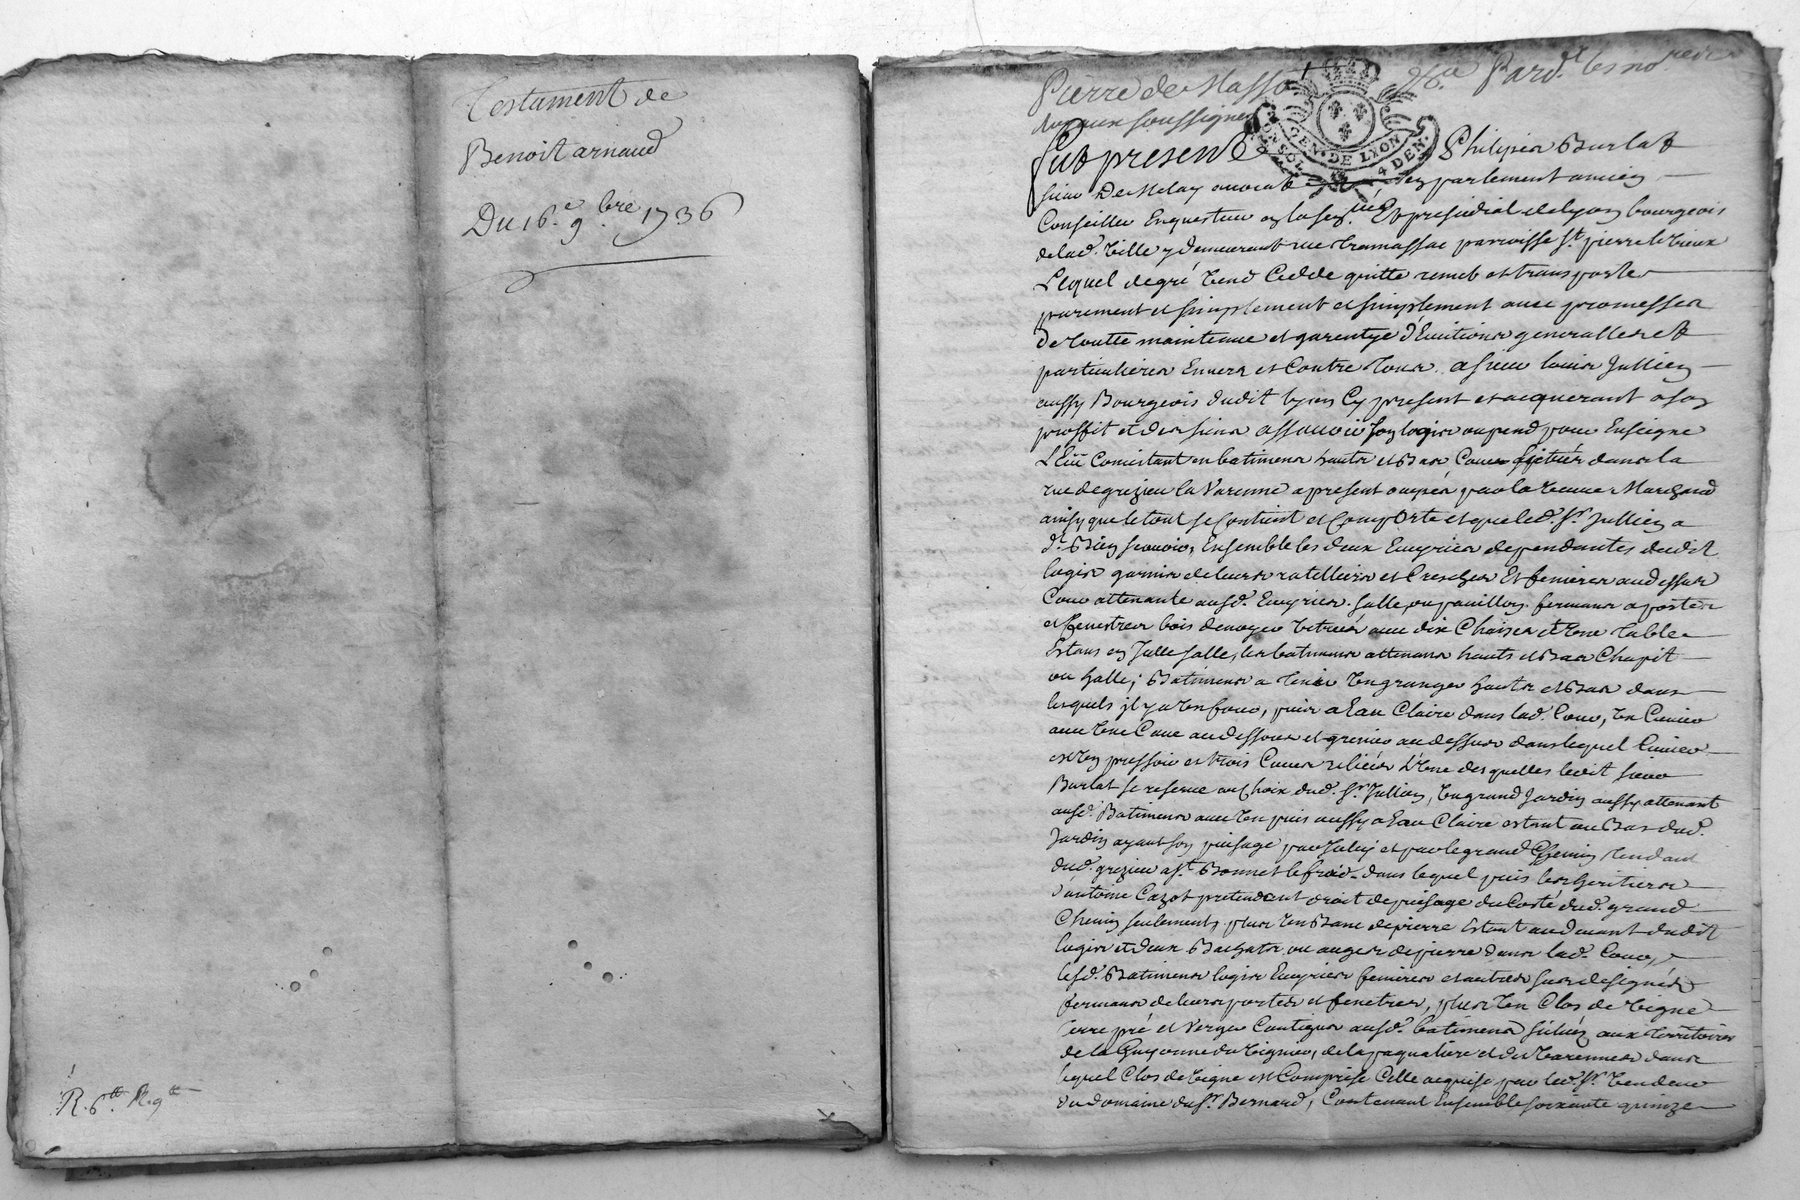 Testument de
Benoit arnaud
Du 16.e 9.bre 1736
R. 6tt R. 9tt
Pierre de Masso Pard.t les no.res
royaux soussignes
GEN. DE LYON
4 DEN.
fut present Philipes Burlat
sieur De Melay avocat en parlement ancien
Conseiller Enquesteur en la sen.ué Et presidial de lyon bourgeois
de lad. Ville y demeurant rue tramassac parroisse St. pierre le Vieux
Lequel de gré Vend Cedde quitte remet et transporte
purement et simplement et simplement avec promesses
De toutte maintenue et garentye d'Euictions generalles et
particulieres Envers et Contre tous. a sieur louis Jullien
aussy Bourgeois dudit lyon Cy present et acquerant a son
proffit et des siens assavoir son logis ou pend pour Enseigne
L'Ecu Consistant en batimens hauts et Bas Cour scituée dans la
rue de grezieu la Varenne a present occupés par la veuve Marchand
ainsy que le tout se Contient et Comporte et que led. Sr. Jullien a
d.t Bien scavoir, Ensemble les deux Ecuyries dependantes dudit
logis garnis de leurs ratelliers et Creches Et fenieres au dessus
Cour attenante ausd. Ecuyries. salle ou pavillon fermans a portes
et fenestres bois de noyer vitrées avec dix Chaises et Une table
Estans en Jcelle salle, les batimens attenans hauts et Bas Chapit
ou halle; Batimens a Tenir En granges hauts et Bas dans
lesquels jl y a Un four, puis a Eau Claire dans lad. Cour, Un Cuvier
avec Une Cave au dessous et grenier au dessus dans lequel Cuvier
est Un pressoir et trois Cuves reliées L'Une desquelles ledit sieur
Burlat se reserve au Choix dud. Sr. Jullien, Un grand Jardin aussy attenant
ausd. Batimens avec Un puis aussy a Eau Claire estant au Bas dud.
Jardin ayant son puisage par Jcluy et par le grand Chemin tendant
dud. grezieu a St. Bonnet le froid. dans lequel puis les heritiers
d'antoine Cazot pretendent droit de puisage du Costé dud. grand
Chemin seulement, plus Un Banc de pierre Estant au devant dudit
logis et deux Bachats ou auges de pierre dans lad. Cour,
lesd. Batimens logis Ecuyries fenieres et autres sus designés
fermans de leurs portes et fenetres, plus Un Clos de Vigne
Terre pré et Verger Contigus ausd. batimens scitués aux territoires
de la Guyonne du Vignier, de la paqualiere et des Varennes dans
lequel Clos de Vigne est Comprise Celle acquise par led. Sr. Vendeur
du domaine du Sr. Bernard, Contenant Ensemble soixante quinze